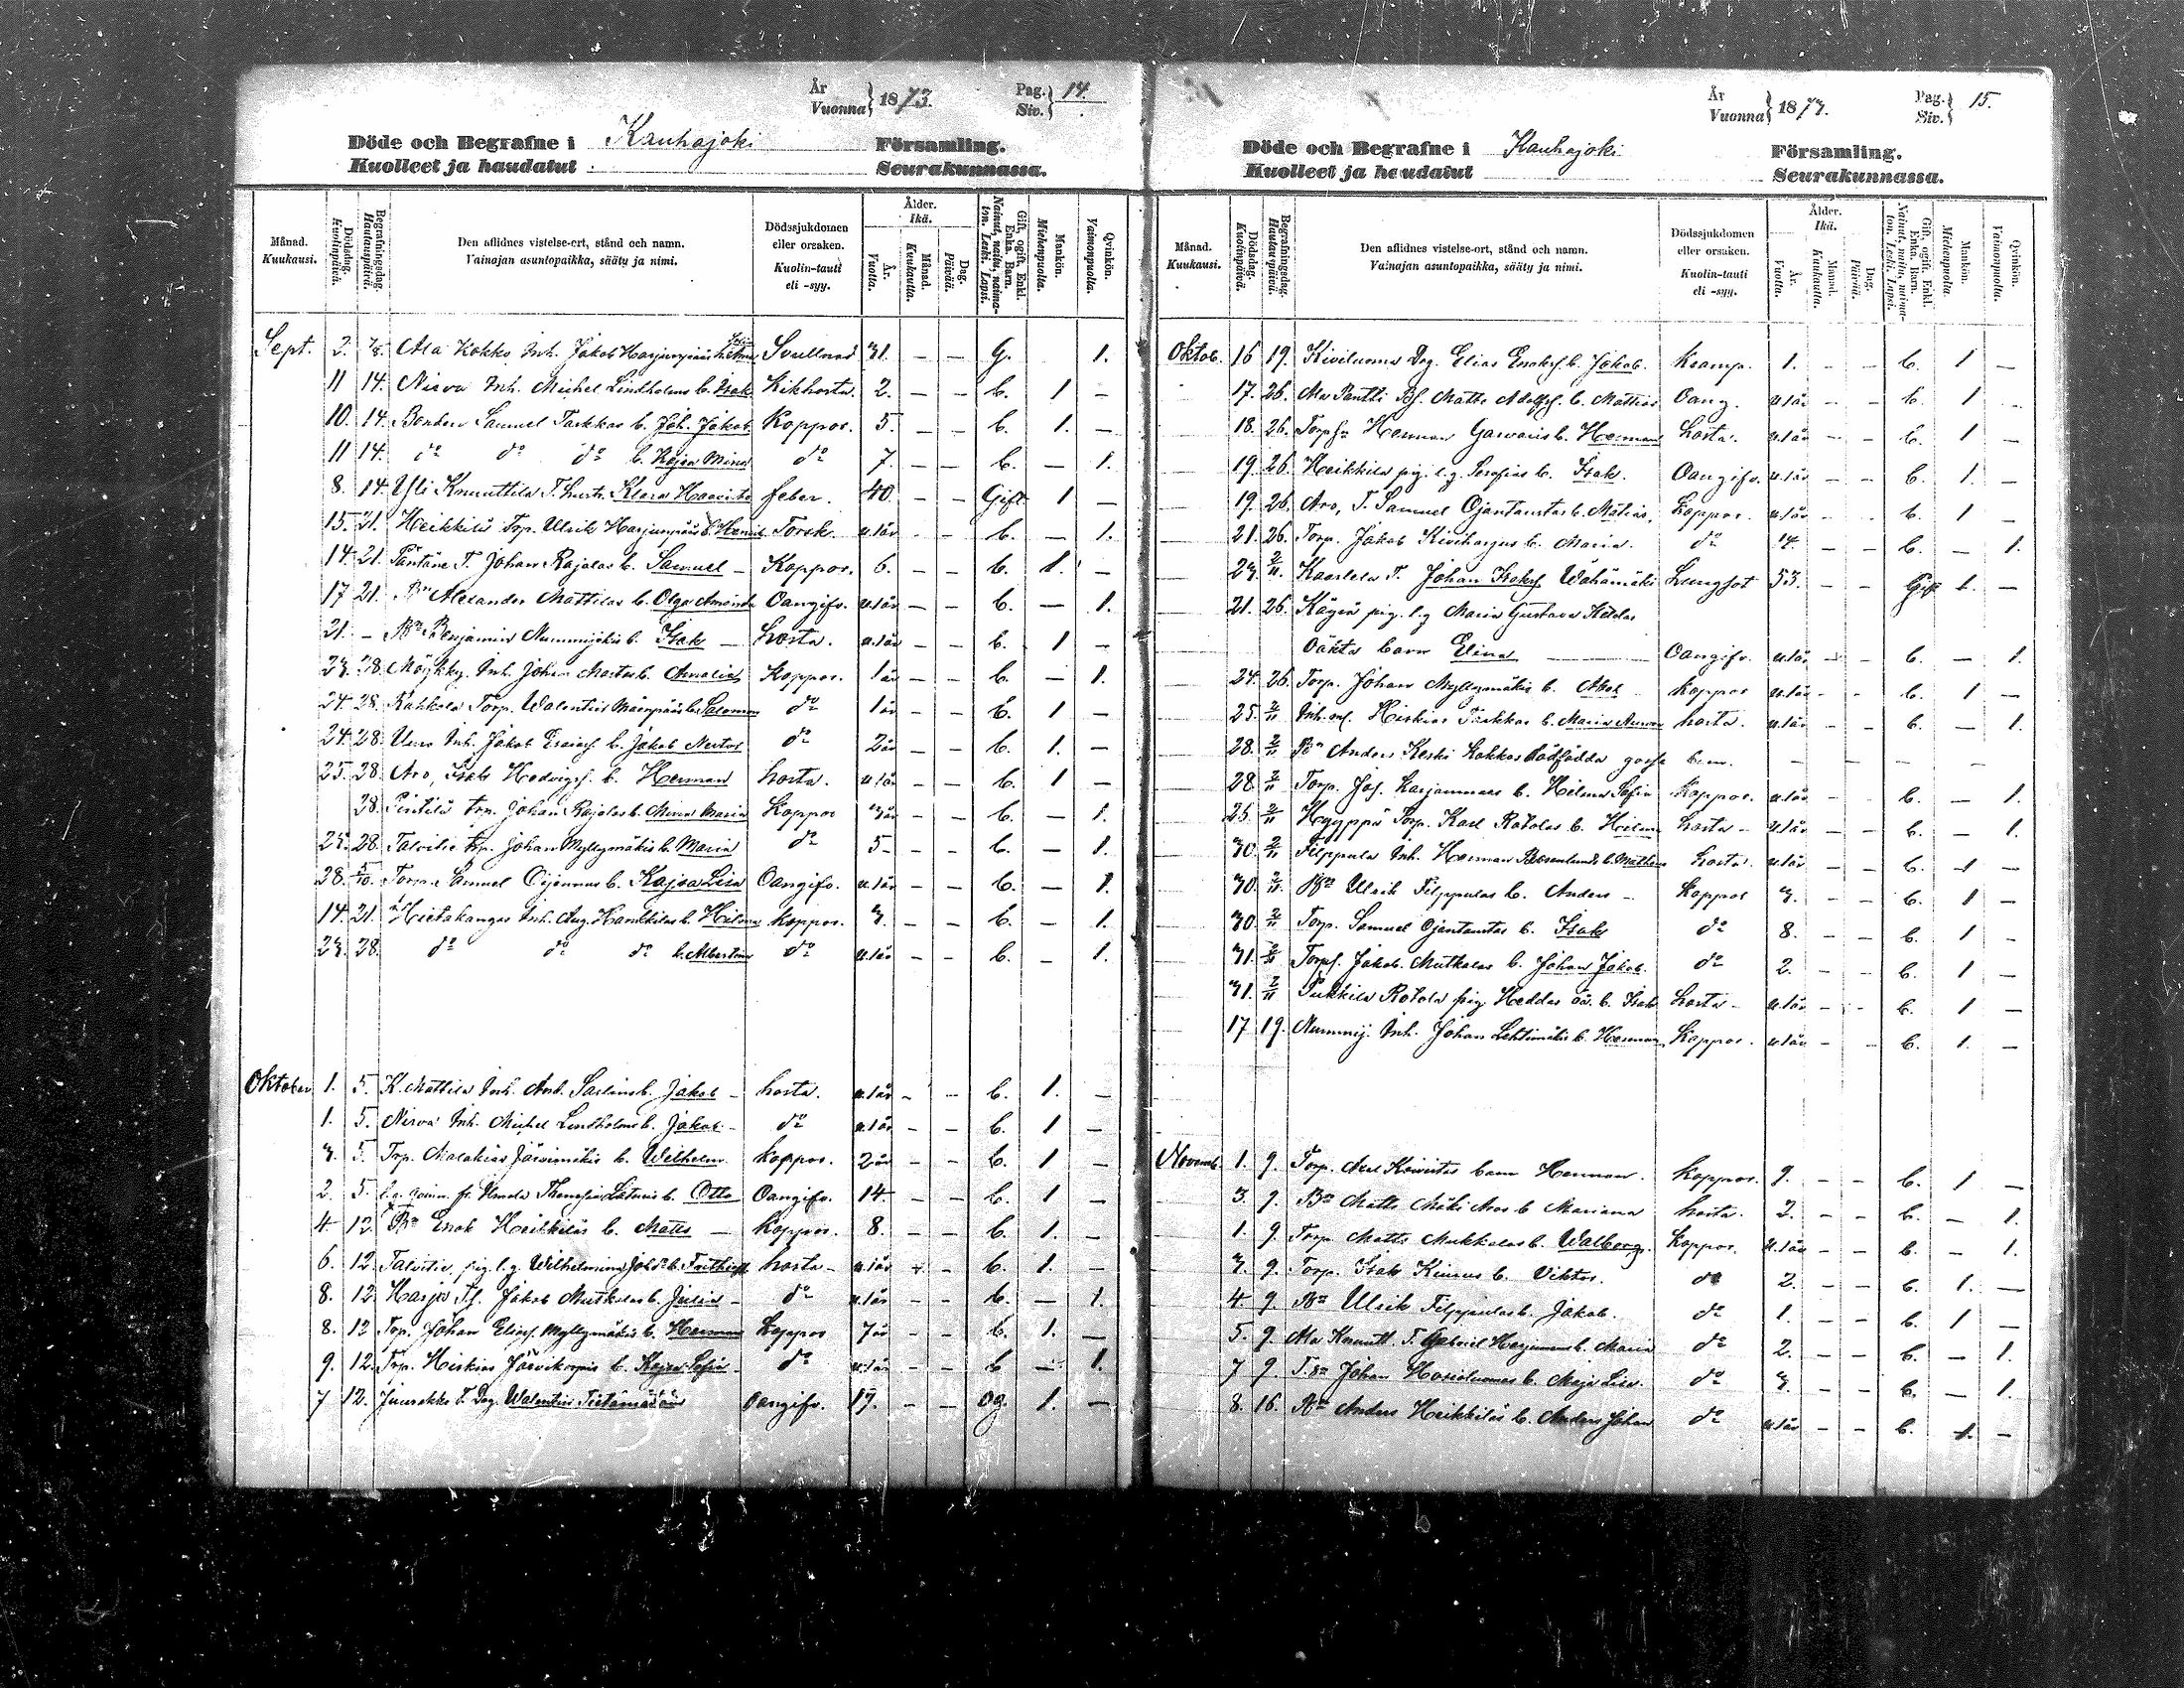 År
Vuonna } 1873. Pag. Siv. } 14.
Döde och Begrafne i Kauhajoki Församling.
Kuolleet ja haudatut Seurakunnassa.
Månad. Kuukausi. Dödsdag. Kuolinpäivä. Begrafningsdag. Hautauspäivä. Den aflidnes vistelse-ort, stånd och namn. Vainajan asuntopaikka, sääty ja nimi. Dödssjukdomen eller orsaken. Kuolin-tauti eli -syy. Ålder. Ikä. År. Vuotta. Månad. Kuukautta. Dag. Päivää. Gift, ogift, Enkl. Enka. Barn. Nainut, naitu, naima-ton. Leski. Lapsi. Mankön. Miehenpuolia. Qvinkön. Vaimonpuolia.
Sept. 2. Ala Kokko Inh. Jakob Harjunpääs 31. – – G. 1.
11 14. Nirva Inh. Michel Lindholms b. Isak Kikhosta 2. – – b. 1 –
10. 14. Bonden Samuel Takkas b. Joh. Jakob Koppor. 5. – – b. 1. –
11 14. do do do b. Kajsa Mina do 7. – – b. – 1.
8. 14 Knuuttila T. hust. Klara feber. 40. – – Gift 1 –
15. 21. Heikkilä Torp. Ulrik Harjunpääs b. Torsk u. 1 år – – b. – 1.
14. 21. Päntäne T. Johan Rajalas b. Samuel – Koppor. 6. – – b. 1. –
17 21. Bn Alexander Mattilas b. Olga Amanda Oangifv. u. 1 år – – b. – 1.
21. – Bn Benjamin Nummijokis b. Isak – hosta. u. 1 år – – b. 1 –
23. 28. Möykky Inh. Johan b. Amalia Koppor. 1 år – – b. – 1.
24. 28. Rahkola Torp. Walentin b. Salomon do 1 år – – b. 1 –
24. 28. Inh. Jakob Esaiæs. b. Jakob Nestor do 2 år – – b. 1. –
25. 28. Aro, Isak Hedvigs. b. Herman hosta. u. 1 år – – b. 1 –
28. Pentilä trp. Johan Rajalas b. Mina Maria Koppor 3 år – – b. – 1.
25. 28. Talvitie trp. Johan Myllymäkis b. Maria do 5 – – – b. – 1.
28. 5/10. Torp. Samuel Ojanens b. Kajsa Lisa Oangifv. u. 1 år – – b. – 1.
14. 21. Hietakangas Inh. Aug. b. Hilma koppor. 3. – – b. – 1.
23. 28. do do do b. Albertina do u. 1 år – – b. – 1.
Oktober 1. 5. K. Mattila Inh. And. b. Jakob – hosta. u. 1 år – – b. 1. –
1. 5. Nirva Inh. Michel Lindholms b. Jakob – do u. 1 år – – b. 1 –
3. 5. Trp. Malakias Järvimäkis b. Wilhelm koppor. 2 år – – b. 1 –
2. 5 b. Otto Oangifv. 14. – – b. 1 –
4 12. Bn Enok Heikkiläs b. Matts – koppor. 8. – – b. 1. –
6. 12 Talvitie, pig. l.g. Wilhelmina b. hosta – u. 1 år – – b. 1. –
8. 12 Harja Tf. Jakob Mutkalas b. Julia – do u. 1 år – – b. – 1.
8. 12 Trp. Johan Elias. Myllymäkis b. Herman koppor 7 år – – b. 1. –
9. 12. Trp. Hiskias b. Kajsa Sofia – do u. 1 år – – b – 1.
7 12. T. Dag. Walentin Oangifv. 17. – – Og. 1. –
År
Vuonna } 1873. Pag. Siv. } 15.
Döde och Begrafne i Kauhajoki Församling.
Kuolleet ja haudatut Seurakunnassa.
Månad. Kuukausi. Dödsdag. Kuolinpäivä. Begrafningsdag. Hautauspäivä. Den aflidnes vistelse-ort, stånd och namn. Vainajan asuntopaikka, sääty ja nimi. Dödssjukdomen eller orsaken. Kuolin-tauti eli -syy. Ålder. Ikä. År. Vuotta. Månad. Kuukautta. Dag. Päivää. Gift, ogift, Enkl. Enka. Barn. Nainut, naitu, naima-ton. Leski. Lapsi. Mankön. Miehenpuolia. Qvinkön. Vaimonpuolia.
Oktob. 16 19. Kiviluoma Dag. Elias b. Jakob. kramp. 1. – – b. 1 –
17. 26. Ala Pantti Bs. Matts Adolfs. b. Mattias Oang. u. 1 år b. 1 –
18. 26. Torps. Herman b. Herman hosta. u. 1 år – – b. 1 –
19. 26. Heikkilä pig. l.g. Serafias b. Isak. Oangifv. u. 1 år b. 1. –
19. 26. Aro, T. Samuel Ojantaustas b. Matias, koppor. u. 1 år – – b. 1 –
21. 26. Torp. Jakob Kiviharjus b. Maria. do 14. – – b. – 1.
23. 2/11. Kaarlela T. Johan Isaks. Wähämäki Lungsot 53. – – Gift 1. –
21. 26. pig. l.g Maria Gustava Heddas
Oäkta barn Elina Oangifv. u. 1 år – – b. – 1.
24. 26. Torp. Johan Myllymäkis b. koppor u. 1 år – – b. 1 –
25. 2/11 Inh. Hiskias b. Maria hosta. u. 1 år – – b. – 1.
28. 2/11 Bn Anders Keski Kokkos dödfödda gosse barn. – – – – –
28. 2/11 Torp. Jos. b. Hilma Sofia koppor. u. 1 år – – b. – 1.
25. 2/11 Hyyppä Torp. Karl Rotolas b. Hilma hosta – u. 1 år – – b. – 1.
30. 2/11 Filppula Inh. Herman b. hosta. u. 1 år – – b. 1 –
30. 2/11 Bn Ulrik Filppulas b. Anders – koppor 3. – – b. 1 –
30. 2/11 Torp. Samuel Ojantaustas b. Isak do 8. – – b. 1 –
31. 2/11 Torps. Jakob Mutkalas b. Johan Jakob. do 2. – – b. 1 –
31. 2/11 Pukkila Rotola pig. Heddas oä. b. Isak hosta – u. 1 år – – b. 1 –
17 19. Nummij. Inh. Johan Lehtimäkis b. Herman koppor. u. 1 år – – b. 1. –
Novemb. 1. 9. Torp. barn Herman. koppor. 9. – – b. 1 –
3. 9. Bn Matts Mäki Aros b Mariana hosta. 2. – – b. – 1.
1. 9. Torp Matts b. Walborg. koppor. u. 1 år – – b. – 1.
3. 9. Torp. Isak b. Viktor. do 2. – – b. 1. –
4. 9. Bn Ulrik Filppulas b. Jakob. do 1. – – b. 1 –
5. 9. Ala Knuutt. T. Gabriel b. Maria do 2. – – b. – 1.
7 9. Johan b. Maja Lisa. do 3. – – b. – 1.
8. 16. Bn Anders Heikkiläs b. Anders Johan do u. 1 år – – b. 1. –